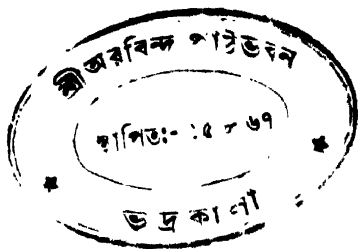 শ্রীঅরবিন্দ পাঠভবন
স্থাপিতঃ-
ভদ্রকালী